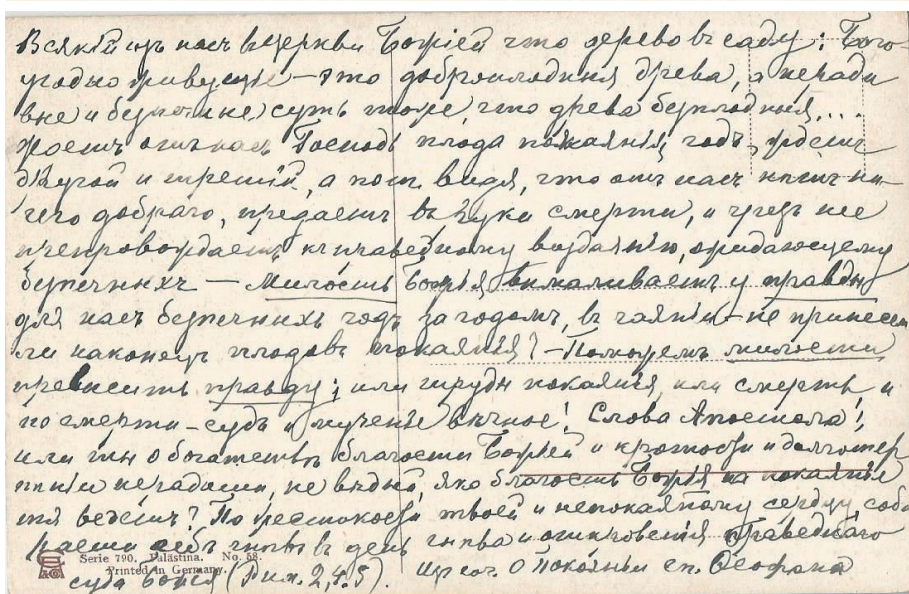 Всякій изъ насъ въ церкви Божіей что дерево въ саду: Бого-
угодно живущіе – это доброплодныя древа, а неради
вые и безпечные суть тоже, что древа безплодныя....
Ждетъ отъ насъ Господь плода покаянія, годъ, ждетъ
другой и третій, а потомъ видя, что отъ насъ нѣтъ ни-
чего добраго, предаетъ въ руки смерти, и чрезъ нее
препровождаетъ къ праведному воздаянію, ожидающему
безпечныхъ — Милость Божія вымаливаетъ у правды
для насъ безпечныхъ годъ за годомъ, въ чаяніи – не принесем
ли наконецъ плодовъ покаянія? – Поможемъ милости
превысить правду; или труды покаянія, или смерть и
по смерти – судъ и мученье вѣчное! Слова Апостола:
или ты о богатствѣ благости Божіей и кротости и долготер
пѣніи нерадиши, не вѣдый, яко благость Божія на покаяніе
тя ведетъ? По жестокости твоей и непокаянному сердцу, соби
раеши себѣ гнѣвъ въ день гнѣва и откровенія Праведнаго
суда Божія (Рим. 2,4.5). Изъ соч. О Покаяніи еп. Ѳеофана
Serie 790. Palästina. No. 68.
Printed in Germany.